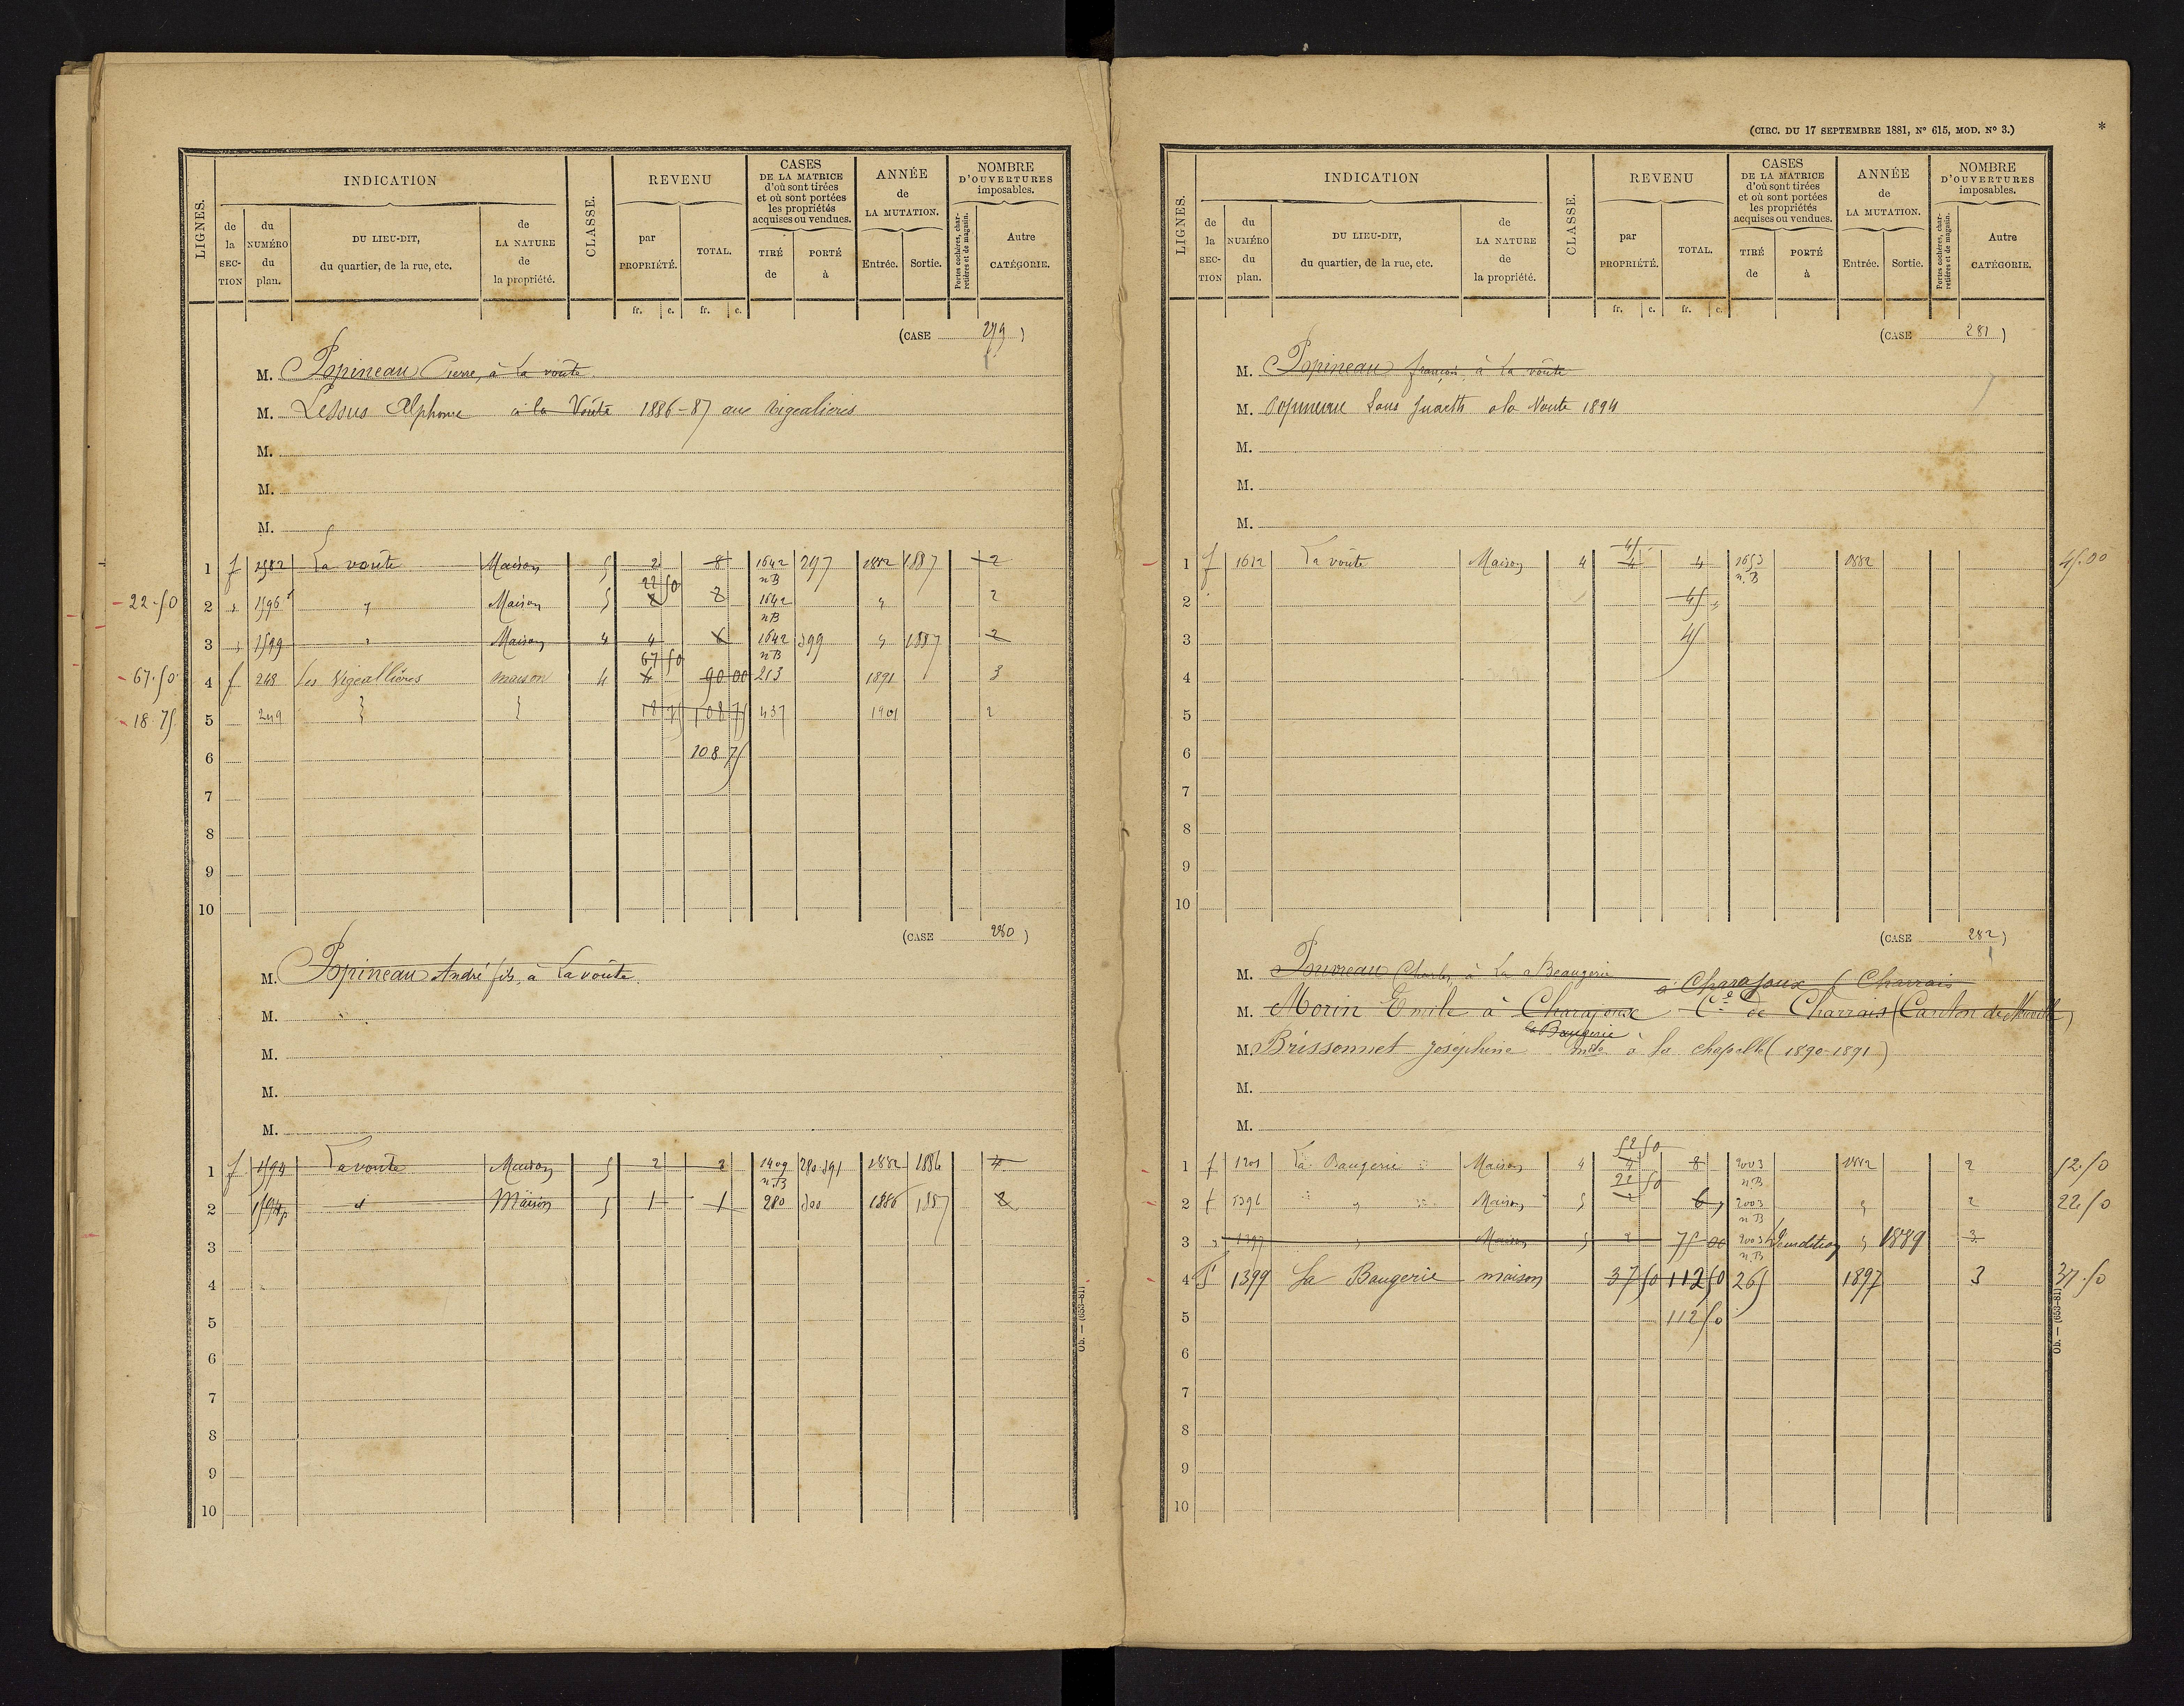 (CIRC. DU 17 SEPTEMBRE 1881, Nº 615, MOD. Nº 3.)
*
LIGNES.
INDICATION
de la SECTION
du NUMÉRO du plan.
DU LIEU-DIT, du quartier, de la rue, etc.
de LA NATURE de la propriété.
CLASSE.
REVENU
par PROPRIÉTÉ.
TOTAL.
fr. c. fr. c.
CASES DE LA MATRICE d'où sont tirées et où sont portées les propriétés acquises ou vendues.
TIRÉ de
PORTÉ à
ANNÉE de LA MUTATION.
Entrée. Sortie.
NOMBRE D'OUVERTURES imposables.
Portes cochères, charretières et de magasin.
Autre CATÉGORIE.
(CASE 279)
M. Popineau Pierre, à La voûte
M. Lessus Alphonse à la Voûte 1886-87 aux Vigealières
M.
M.
M.
1 f 1582 La voûte Maison 5 2 8 1642 n B 297 1882 1887 2
22.50 2 " 1596 " Maison 5 22 50 2 1642 n B " 2
3 " 1599 " Maison 4 4 6 1642 n B 399 " 1887 2
67.50 4 f 248 les Vigeallières maison 4 67 50 4 90 00 213 1891 3
18.75 5 249 18 75 108 75 437 1901 2
6 108 75
7
8
9
10
(CASE 280)
M. Popineau André fils, à La voûte.
M.
M.
M.
M.
1 f 1594 La voute Maison 5 2 2 1409 n.B 280.391 1882 1886 4
2 1594p d Maison 5 1 1 280 300 1886 1887 2
3
4
5
6
7
8
9
10
Ob. — (653-81)
LIGNES.
INDICATION
de la SECTION
du NUMÉRO du plan.
DU LIEU-DIT, du quartier, de la rue, etc.
de LA NATURE de la propriété.
CLASSE.
REVENU
par PROPRIÉTÉ.
TOTAL.
fr. c. fr. c.
CASES DE LA MATRICE d'où sont tirées et où sont portées les propriétés acquises ou vendues.
TIRÉ de
PORTÉ à
ANNÉE de LA MUTATION.
Entrée. Sortie.
NOMBRE D'OUVERTURES imposables.
Portes cochères, charretières et de magasin.
Autre CATÉGORIE.
(CASE 281)
M. Popineau françois, à La voûte
M. Louis à la Voute 1894
M.
M.
M.
1 f 1612 La voûte Maison 4 45 4 4 1653 n.B 1882 45.00
2 45 "
3 45
4
5
6
7
8
9
10
(CASE 282)
M. Charles, à La Beaugerie à Charajoux (Charrais
M. Morin Emile à Charajoux Cne de Charrais (Canton de
la Baugerie
M. Brissonnet Joséphine à la chapelle (1890-1891)
M.
M.
1 f 1201 La Baugerie Maison 4 52 50 4 8 2003 n.B 1882 2 52.50
2 f 1396 " Maison 5 22 50 2 6 2003 n B " 2 22.50
3 " 1397 " Maison 5 2 75 00 2003 n.B Démolition " 1889 3
4 F 1399 La Baugerie maison 37 50 112 50 265 1897 3 37.50
5 112 50
6
7
8
9
10
Ob. — (653-81)